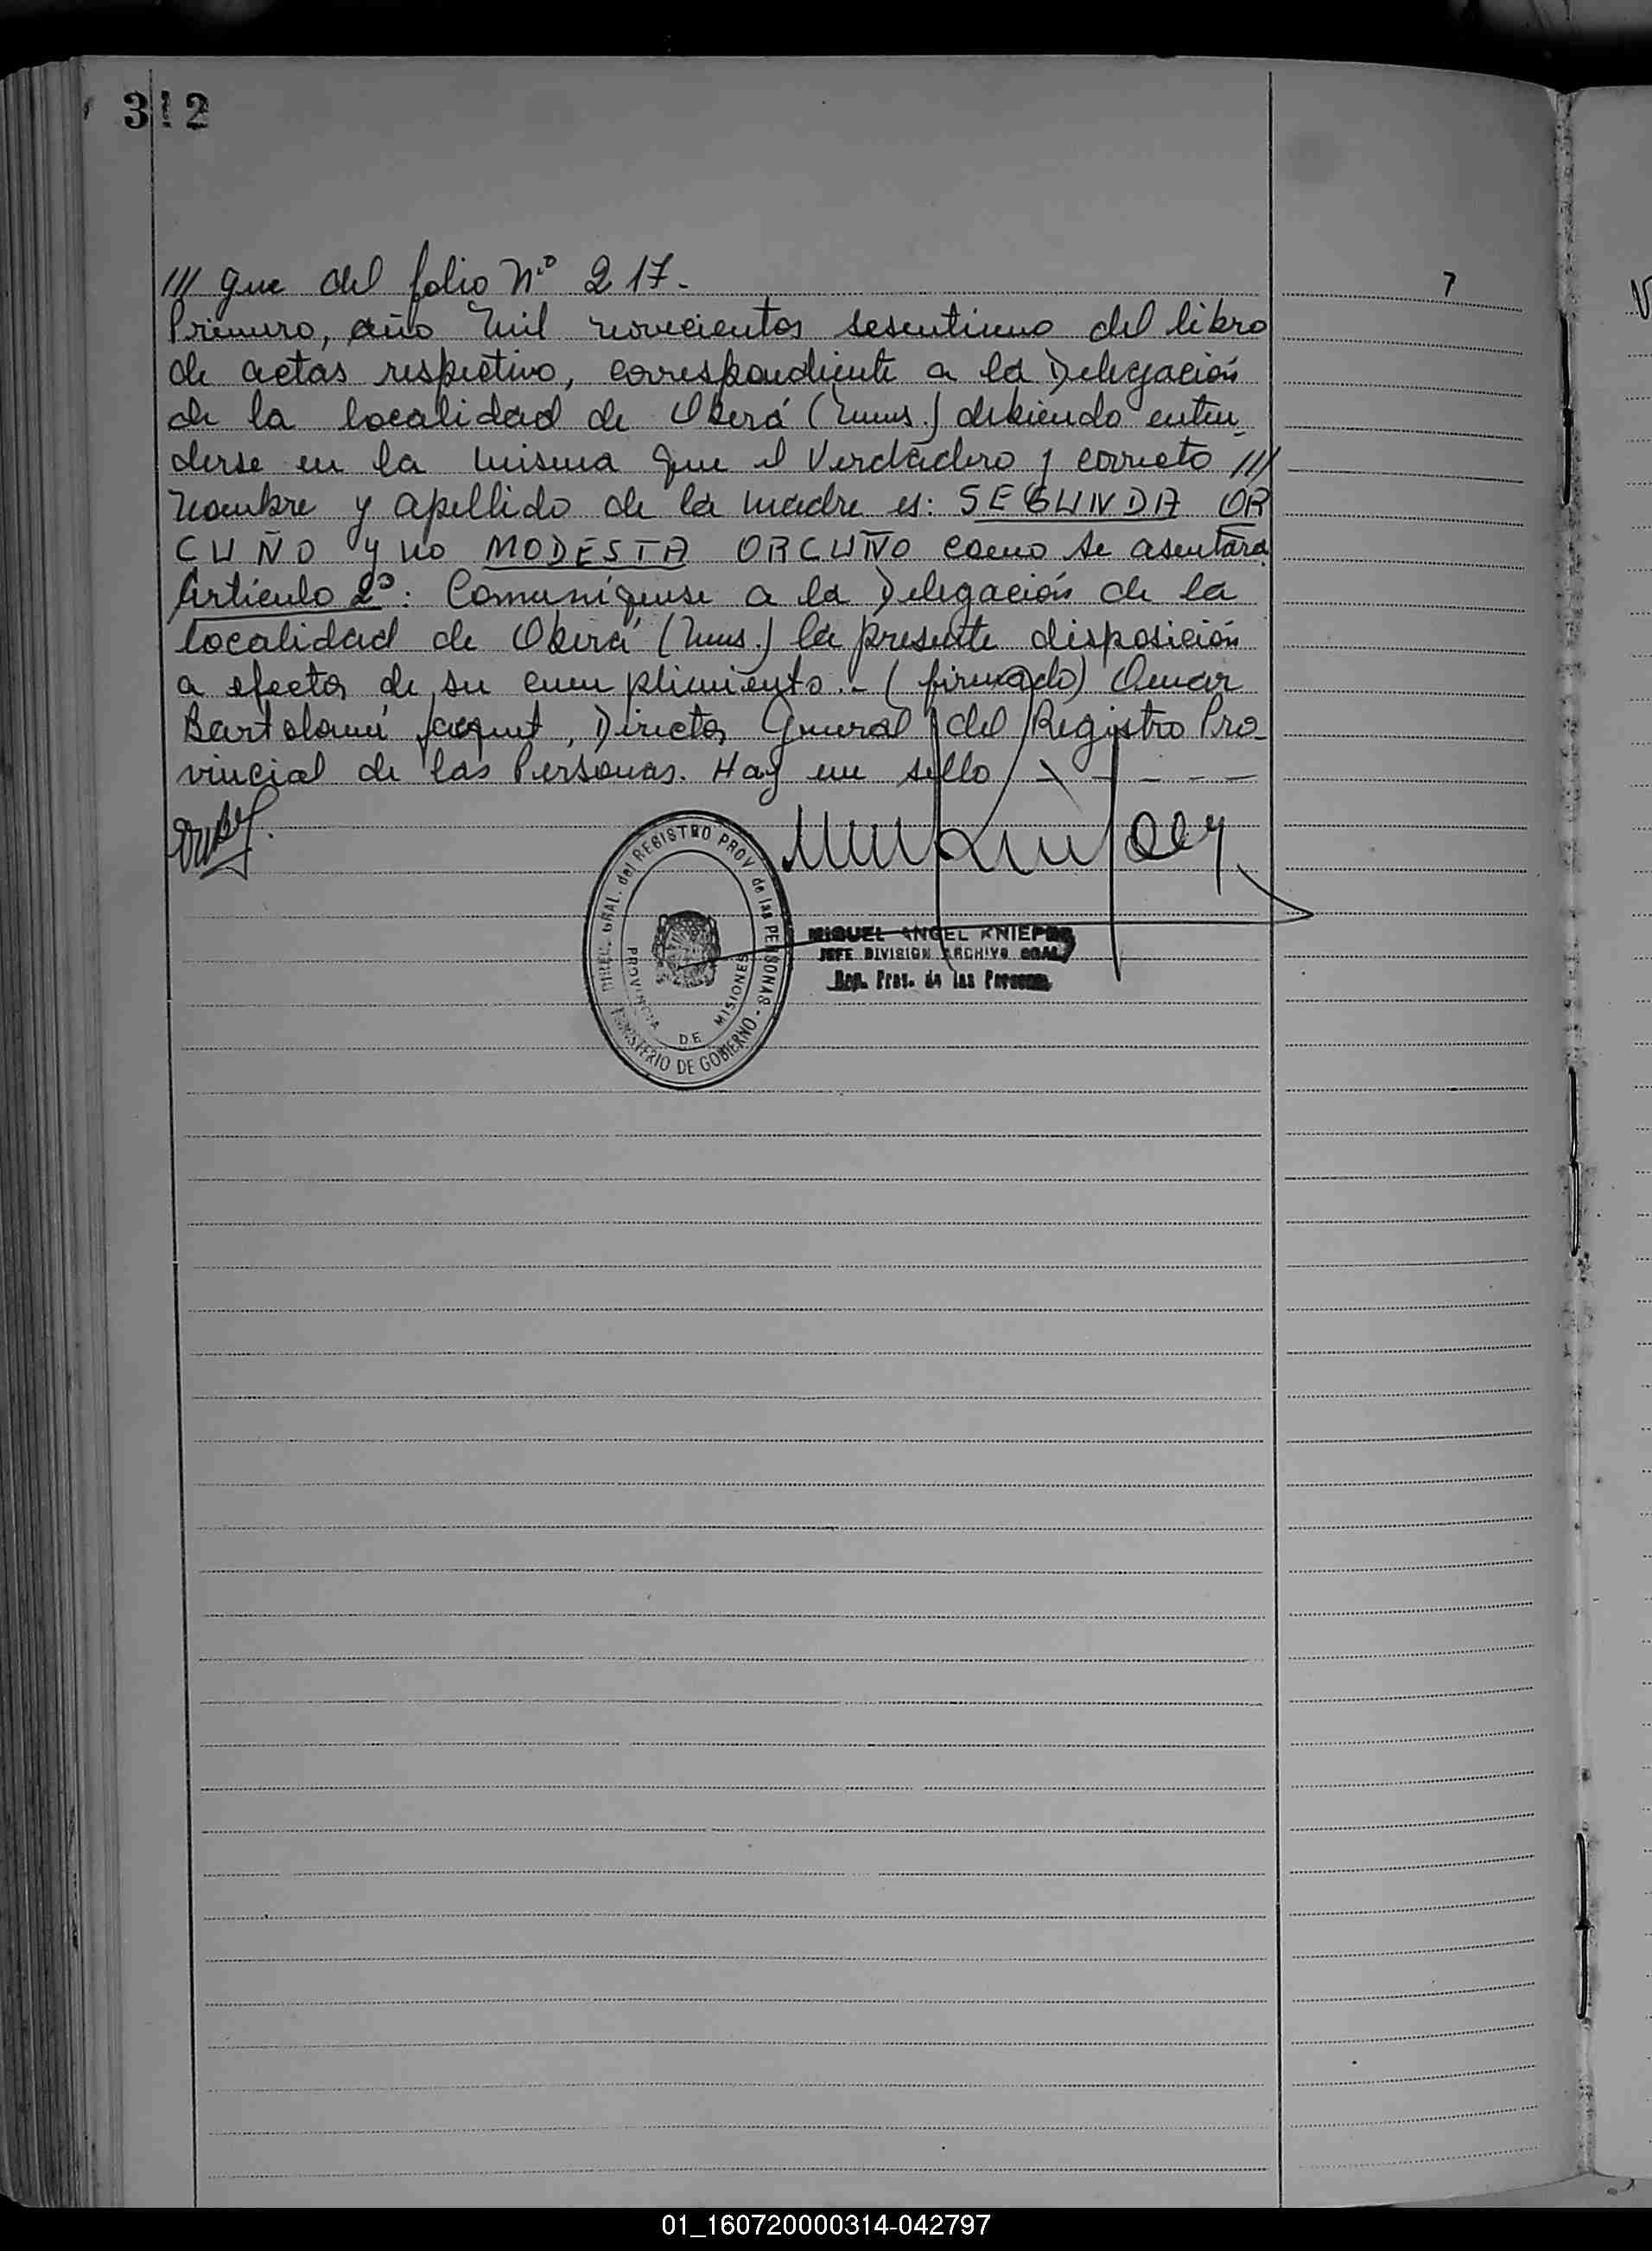 312
/// que del folio Nº 217.-
7
Primero, año mil novecientos sesentiuno del libro
de actas respectivo, correspondiente a la Delegación
de la localidad de Oberá (Mnes.) debiendo enten-
derse en la misma que el verdadero y correcto ///
nombre y apellido de la madre es: SEGUNDA OR
CUÑO y no MODESTA ORCUÑO como se asentara.
Artículo 2º: Comuníquese a la Delegación de la
localidad de Oberá (Mnes.) la presente disposición
a efectos de su cumplimiento.- (firmado) Omar
Bartolomé Jacquet, Director General del Registro Pro-
vincial de las Personas. Hay un sello \ - - - -
DIREC. GRAL. del REGISTRO PROV. de las PERSONAS -
MINISTERIO DE GOBIERNO -
PROVINCIA DE MISIONES
MIGUEL ANGEL KNIEPOR
JEFE DIVISION ARCHIVO GRAL.
Rep. Prov. de las Personas
01_160720000314-042797